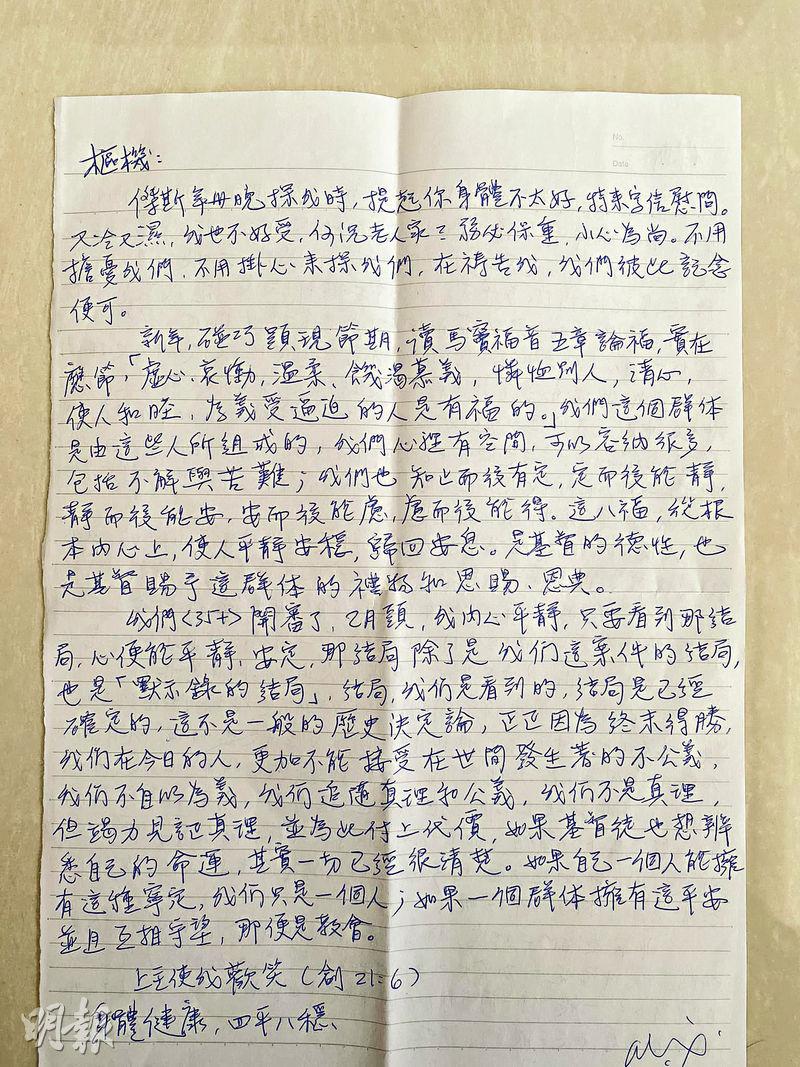 No.
Date
樞機：
傑斯年毋晚探我時，提起你身體不太好，特來字信慰問。
又冷又濕，我也不好受，何況老人家？務必保重，小心為尚。不用
擔憂我們，不用掛心來探我們，在禱告裡，我們彼此記念
便可。
新年，碰巧顯現節期，讀馬竇福音五章論福，實在
應節，「虛心、哀慟，溫柔、饑渴慕義，憐恤別人，清心，
使人和睦，為義受逼迫的人是有福的。」我們這個群体
是由這些人所組成的，我們心裡有空間，可以容納很多，
包括不解與苦難；我們也知止而後有定，定而後能靜，
靜而後能安，安而後能慮，慮而後能得。這八福，從根
本內心上，使人平靜安穩，歸回安息。是基督的德性，也
是基督賜予這群体的禮物和恩賜、恩典。
我們<35+>開審了，2月頭，我內心平靜，只要看到那結
局，心便能平靜、安定，那結局除了是我们這案件的結局，
也是「默示錄的結局」，結局，我们是看到的，結局是已經
確定的，這不是一般的歷史決定論，正正因為終末得勝，
我们在今日的人，更加不能接受在世間發生著的不公義，
我们不自以為義，我们追隨真理和公義，我们不是真理，
但竭力見証真理，並為此付上代價，如果基督徒也想辨
悉自己的命運，其實一切已經很清楚。如果自己一個人能擁
有這種寧定，我们只是一個人；如果一個群体擁有這平安
並且互相守望，那便是教會。
上主使我歡笑（創21:6）
身體健康，四平八穩、
明報